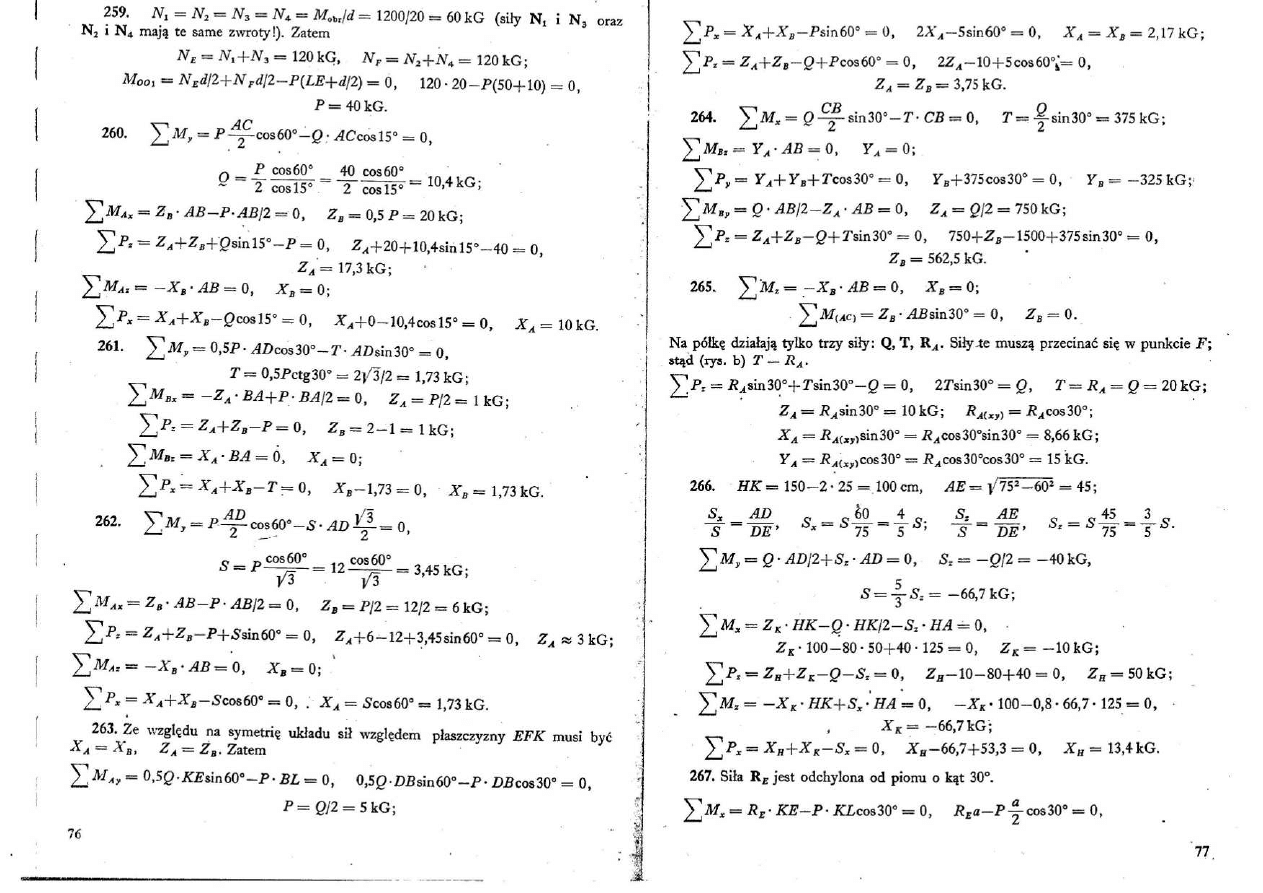 259. N₁ = N₂ = N₃ = N₄ = M_obr/d = 1200/20 = 60 kG (siły N₁ i N₃ oraz
N₂ i N₄ mają te same zwroty!). Zatem
N_E = N₁+N₃ = 120 kG, N_F = N₂+N₄ = 120 kG;
M_OO₁ = N_E d/2+N_F d/2−P(LE+d/2) = 0, 120·20−P(50+10) = 0,
P = 40 kG.
260. ∑M_y = P AC/2 cos60°−Q·AC cos15° = 0,
Q = P/2 cos60°/cos15° = 40/2 cos60°/cos15° = 10,4 kG;
∑M_Ax = Z_B·AB−P·AB/2 = 0, Z_B = 0,5 P = 20 kG;
∑P_z = Z_A+Z_B+Qsin15°−P = 0, Z_A+20+10,4sin15°−40 = 0,
Z_A = 17,3 kG;
∑M_Az = −X_B·AB = 0, X_B = 0;
∑P_x = X_A+X_B−Qcos15° = 0, X_A+0−10,4cos15° = 0, X_A = 10 kG.
261. ∑M_y = 0,5P·ADcos30°−T·ADsin30° = 0,
T = 0,5Pctg30° = 2√3/2 = 1,73 kG;
∑M_Bx = −Z_A·BA+P·BA/2 = 0, Z_A = P/2 = 1 kG;
∑P_z = Z_A+Z_B−P = 0, Z_B = 2−1 = 1 kG;
∑M_Bz = X_A·BA = 0, X_A = 0;
∑P_x = X_A+X_B−T = 0, X_B−1,73 = 0, X_B = 1,73 kG.
262. ∑M_y = P AD/2 cos60°−S·AD √3/2 = 0,
S = P cos60°/√3 = 12 cos60°/√3 = 3,45 kG;
∑M_Ax = Z_B·AB−P·AB/2 = 0, Z_B = P/2 = 12/2 = 6 kG;
∑P_z = Z_A+Z_B−P+Ssin60° = 0, Z_A+6−12+3,45sin60° = 0, Z_A ≈ 3 kG;
∑M_Az = −X_B·AB = 0, X_B = 0;
∑P_x = X_A+X_B−Scos60° = 0, X_A = Scos60° = 1,73 kG.
263. Ze względu na symetrię układu sił względem płaszczyzny EFK musi być
X_A = X_B, Z_A = Z_B. Zatem
∑M_Ay = 0,5Q·KEsin60°−P·BL = 0, 0,5Q·DBsin60°−P·DBcos30° = 0,
P = Q/2 = 5 kG;
76
∑P_x = X_A+X_B−Psin60° = 0, 2X_A−5sin60° = 0, X_A = X_B = 2,17 kG;
∑P_z = Z_A+Z_B−Q+Pcos60° = 0, 2Z_A−10+5cos60° = 0,
Z_A = Z_B = 3,75 kG.
264. ∑M_x = Q CB/2 sin30°−T·CB = 0, T = Q/2 sin30° = 375 kG;
∑M_Bz = Y_A·AB = 0, Y_A = 0;
∑P_y = Y_A+Y_B+Tcos30° = 0, Y_B+375cos30° = 0, Y_B = −325 kG;
∑M_By = Q·AB/2−Z_A·AB = 0, Z_A = Q/2 = 750 kG;
∑P_z = Z_A+Z_B−Q+Tsin30° = 0, 750+Z_B−1500+375sin30° = 0,
Z_B = 562,5 kG.
265. ∑M_z = −X_B·AB = 0, X_B = 0;
∑M_(AC) = Z_B·ABsin30° = 0, Z_B = 0.
Na półkę działają tylko trzy siły: Q, T, R_A. Siły te muszą przecinać się w punkcie F;
stąd (rys. b) T − R_A.
∑P_z = R_A sin30°+Tsin30°−Q = 0, 2Tsin30° = Q, T = R_A = Q = 20 kG;
Z_A = R_A sin30° = 10 kG; R_A(xy) = R_A cos30°;
X_A = R_A(xy) sin30° = R_A cos30°sin30° = 8,66 kG;
Y_A = R_A(xy) cos30° = R_A cos30°cos30° = 15 kG.
266. HK = 150−2·25 = 100 cm, AE = √75²−60² = 45;
S_x/S = AD/DE, S_x = S 60/75 = 4/5 S; S_z/S = AE/DE, S_z = S 45/75 = 3/5 S.
∑M_y = Q·AD/2+S_z·AD = 0, S_z = −Q/2 = −40 kG,
S = 5/3 S_z = −66,7 kG;
∑M_x = Z_K·HK−Q·HK/2−S_z·HA = 0,
Z_K·100−80·50+40·125 = 0, Z_K = −10 kG;
∑P_z = Z_H+Z_K−Q−S_z = 0, Z_H−10−80+40 = 0, Z_H = 50 kG;
∑M_z = −X_K·HK+S_x·HA = 0, −X_K·100−0,8·66,7·125 = 0,
X_K = −66,7 kG;
∑P_x = X_H+X_K−S_x = 0, X_H−66,7+53,3 = 0, X_H = 13,4 kG.
267. Siła R_E jest odchylona od pionu o kąt 30°.
∑M_x = R_E·KE−P·KLcos30° = 0, R_E a−P a/2 cos30° = 0,
77